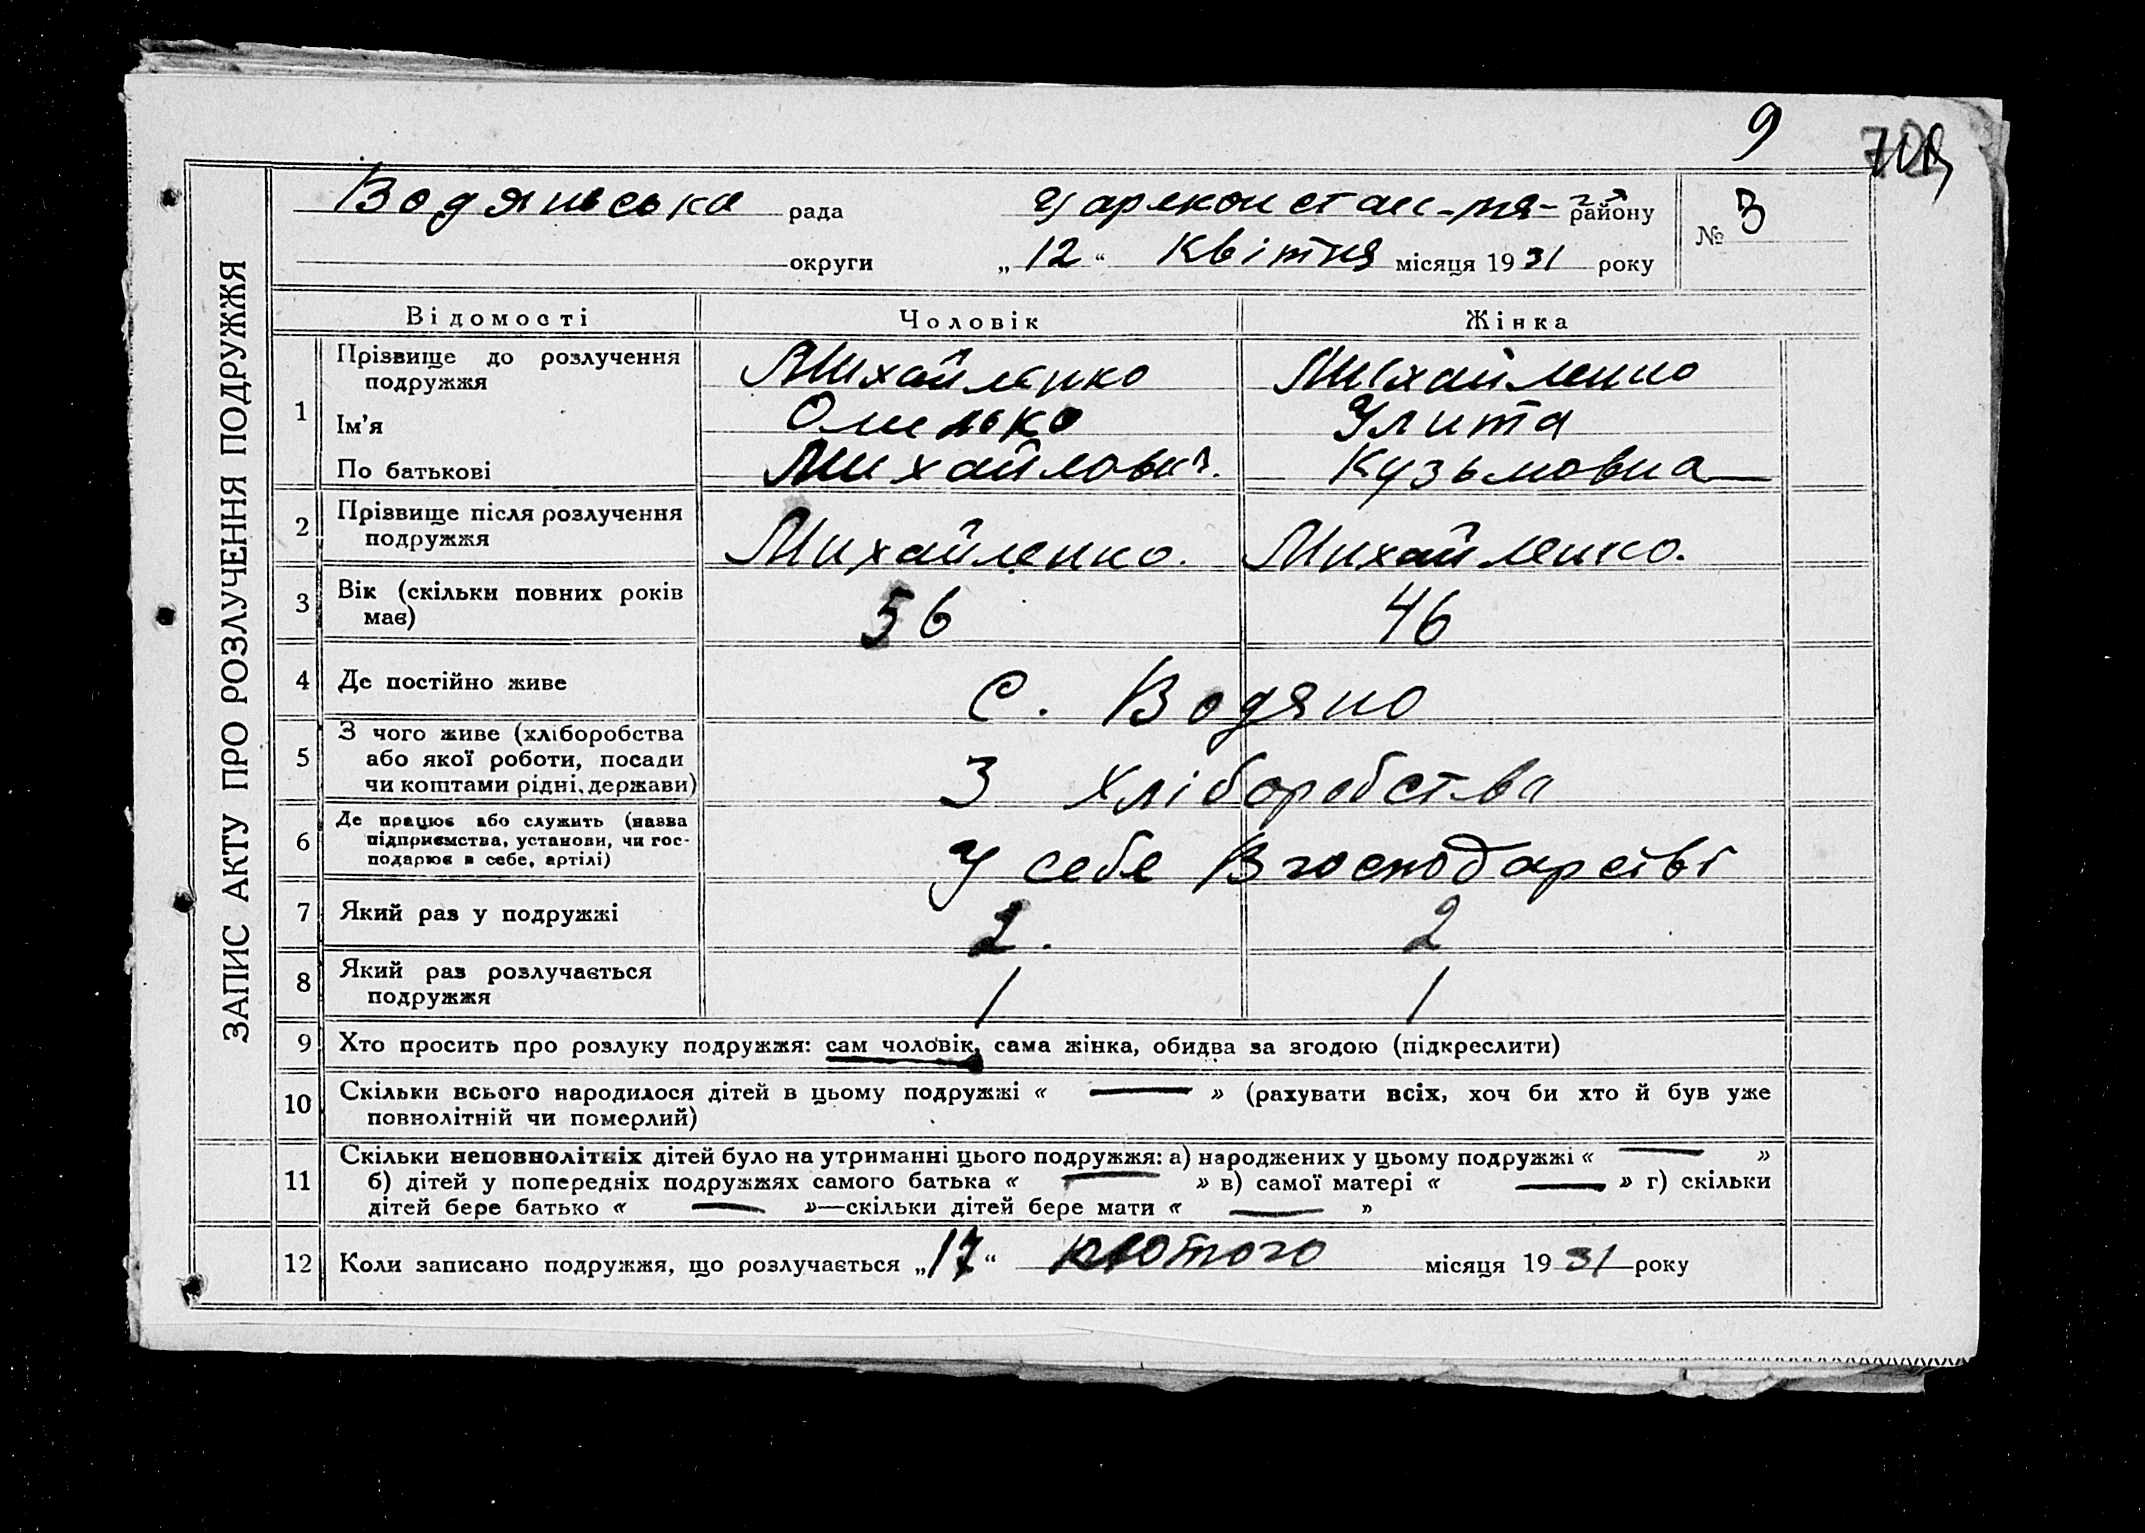 9
Водянська рада
района
№ 3
округи „12“ Квітня місяця 1931 року
ЗАПИС АКТУ ПРО РОЗЛУЧЕННЯ ПОДРУЖЖЯ
Відомості Чоловік Жінка
1 Прізвище до розлучення
подружжя Михайленко Михайленко
Ім’я Улита
По батькові Михайлович. Кузьмовна
2 Прізвище після розлучення
подружжя Михайленко. Михайленко.
3 Вік (скільки повних років
має) 56 46
4 Де постійно живе С. Водяно
5 З чого живе (хліборобства
або якої роботи, посади
чи коштами рідні, держави) З хліборобства
6 Де працює або служить (назва
підприємства, установи, чи гос-
подарює в себе, артілі) У себе В господарстві
7 Який раз у подружжі 2. 2
8 Який раз розлучається
подружжя 1 1
9 Хто просить про розлуку подружжя: сам чоловік, сама жінка, обидва за згодою (підкреслити)
10 Скільки всього народилося дітей в цьому подружжі « — » (рахувати всіх, хоч би хто й був уже
повнолітній чи померлий)
11 Скільки неповнолітніх дітей було на утриманні цього подружжя: а) народжених у цьому подружжі « — »
б) дітей у попередніх подружжях самого батька « — » в) самої матері « — » г) скільки
дітей бере батько « — »—скільки дітей бере мати « — »
12 Коли записано подружжя, що розлучається „17“ лютого місяця 1931 року